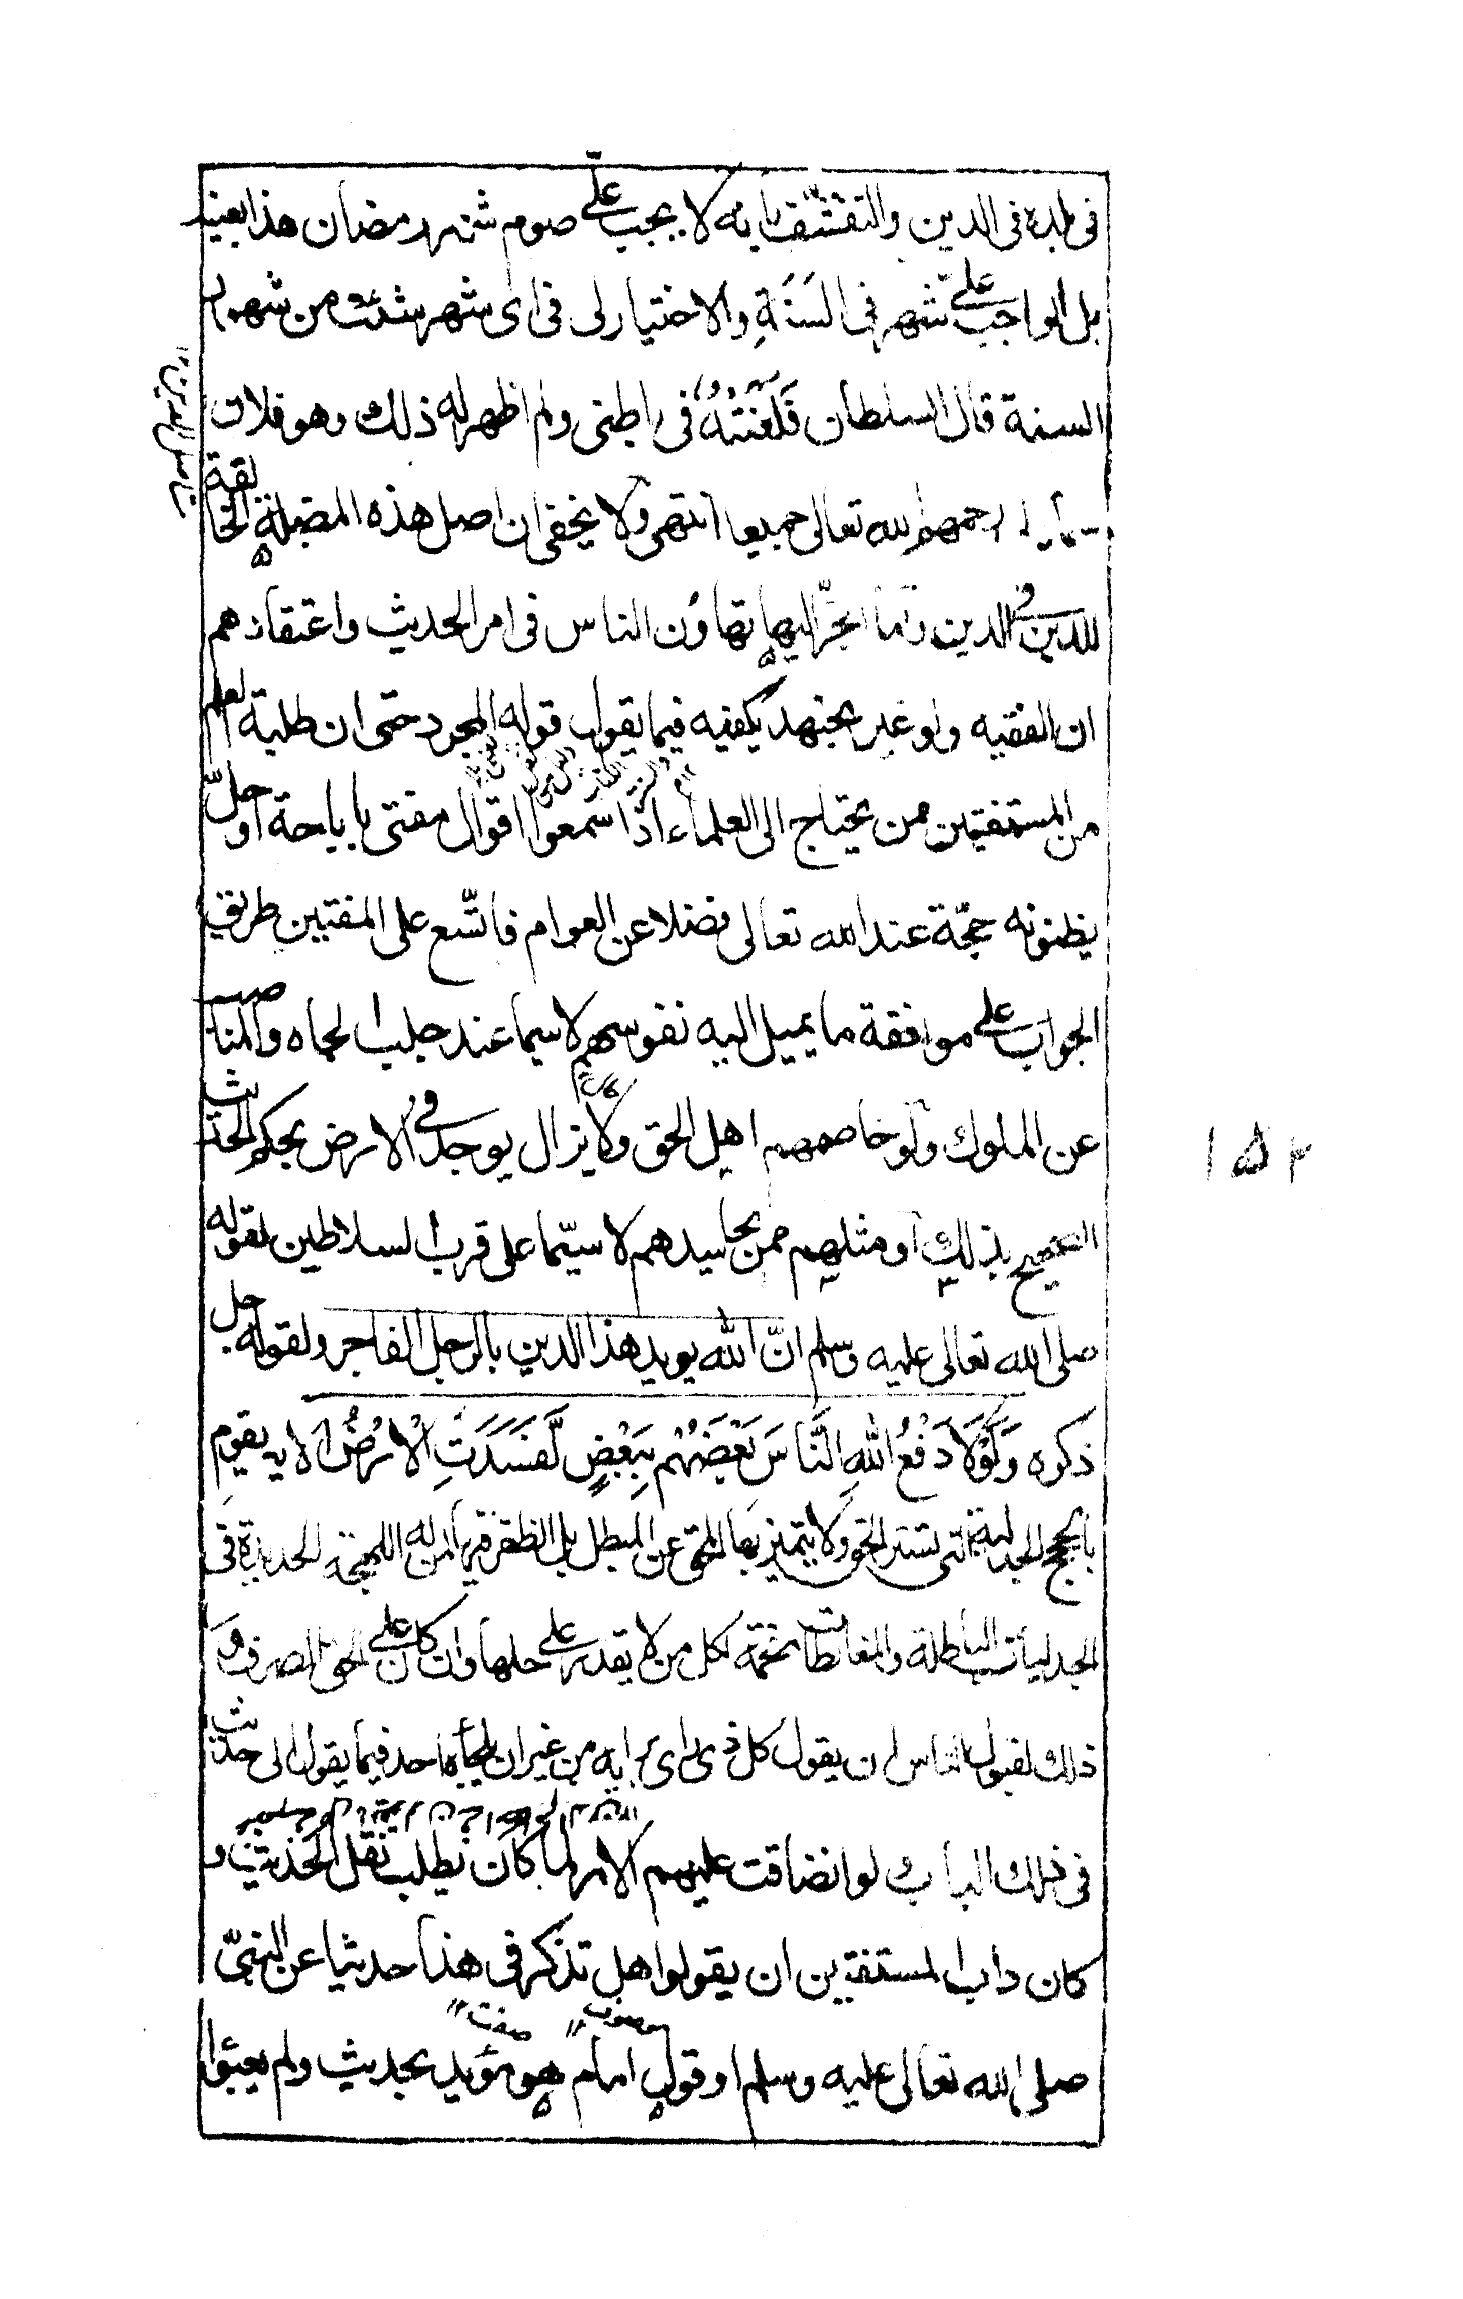 فى بلده فى الدين والتقشف بانه لا يجب علىّ صوم شهر رمضان هذا بعينه
بل الواجب علىّ شهر فى السَنَةِ والاختيار لى فى اى شهر شئت من شهور
السنة قال السلطان فَلَعَنْتُهُ فى باطنى ولم اظهر له ذلك وهو فلان
رحمهم الله تعالى جميعا انتهى ولا يخفى ان اصل هذه المضلة الخالقة
للدين فى الدين وما انجرّ اليها تهاوُن الناس فى امر الحديث واعتقادهم
ان الفقيه ولو غير مجتهد يكفيه فيما يقول قوله المجرد حتى ان طلبة العلم
من المستفتين ممن يحتاج الى العلماء اذا سمعوا اقوال مفتى با باباحة او حلّ
يظنونه حجّة عند الله تعالى فضلا عن العوام فاتّسع على المفتيين طريق
الجواب على موافقة ما يميل اليه نفوسهم لا سيما عند جلب الجاه والمناصب
عن الملوك ولو خاصمهم اهل الحق ولا يزال يوجد فى الارض بحكم الحديث
الصحيح بذلك او مثلهم ممن يحاسيدهم لا سيّما على قرب السلاطين لقوله
صلى الله تعالى عليه وسلم انّ الله يويد هذا الدين بالرجل الفاجر ولقوله جل
ذكره وَلَوْلَا دَفْعُ اللهِ النَّاسَ بَعْضَهُمْ بِبَعْضٍ لَّفَسَدَتِ الْاَرْضُ الاية يقوم
بالحجج الجدلية التى تستر الحق ولا يتميز بها المحق عن المبطل بل الظفر فيها لمن له اللهجة الحديدة فى
الجدليات الباطلة والمغالطات مفحمة لكل من لا يقدر على حلها وان كان على الحق الصرف و
ذلك لقبول الناس ان يقول كل ذى راى برايه من غير ان يلجأه احد فيما يقول الى حديث
فى ذلك الباب ولو انضاقت عليهم الامر لما كان يطلب نقل الحديث و
كان داب المستفتين ان يقولوا هل تذكر فى هذا حديثا عن النبىّ
موصوف صفت
صلى الله تعالى عليه وسلم او قول امام هو مؤيد بحديث ولم يعبئوا
١٥٢